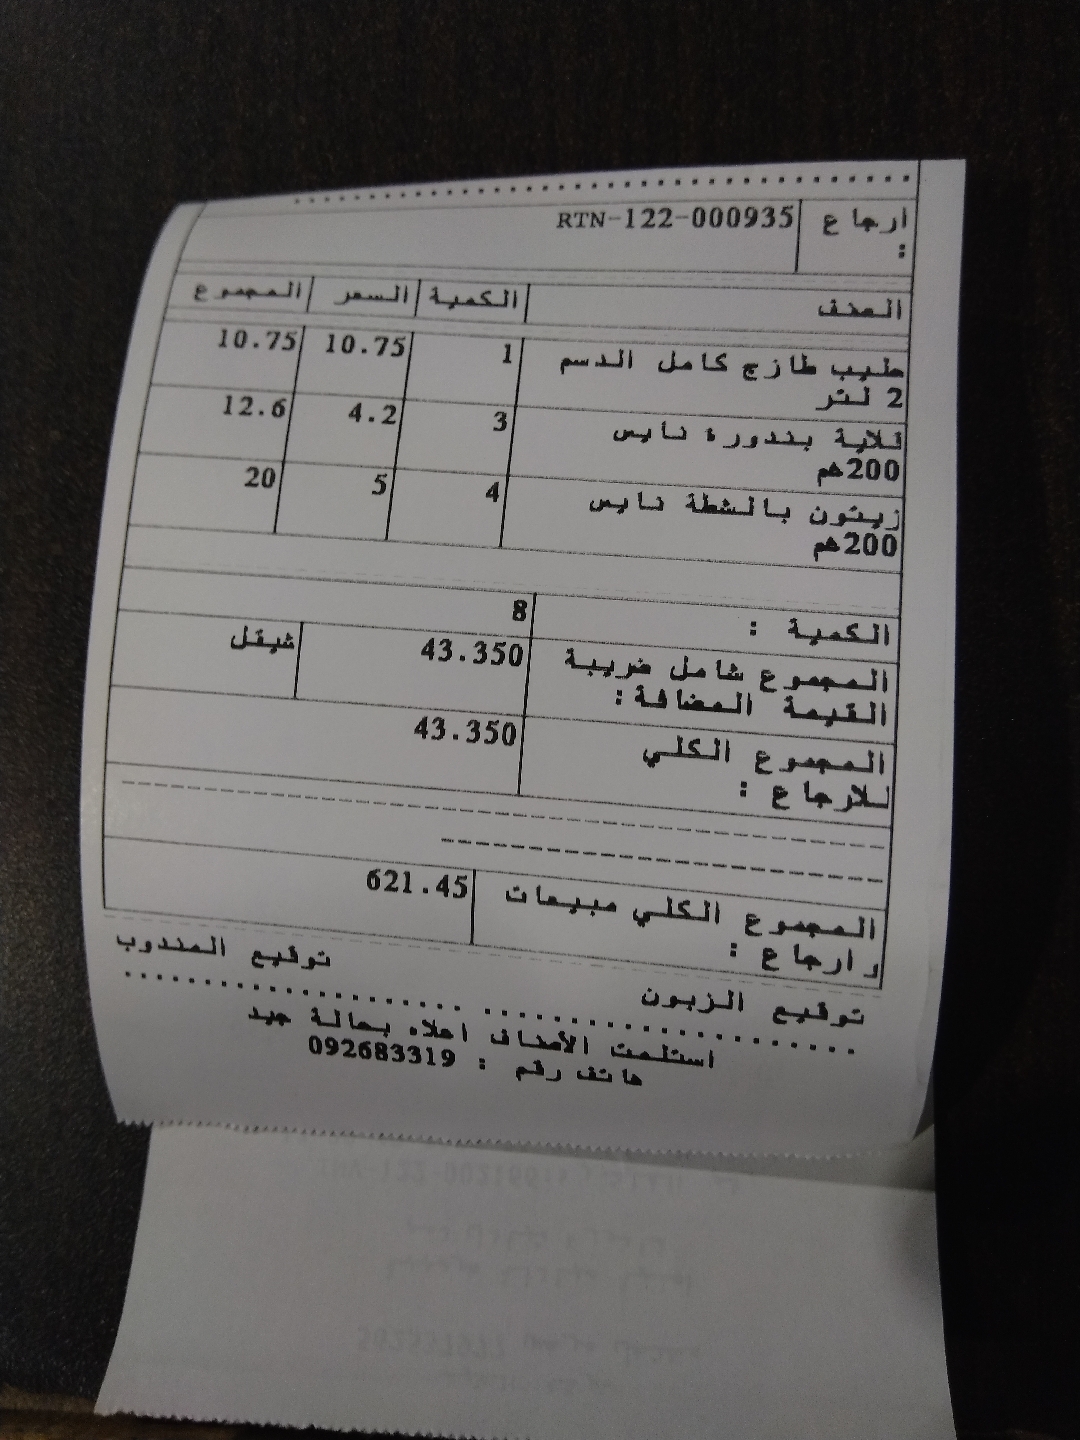 ارجاع RTN-122-000935
:
الصنف الكمية السعر المجموع
حليب طازج كامل الدسم 1 10.75 10.75
2 لتر
قلاية بندورة نايس 3 4.2 12.6
200غم
زيتون بالشطة نايس 4 5 20
200غم
الكمية : 8
المجموع شامل ضريبة 43.350 شيقل
القيمة المضافة:
المجموع الكلي 43.350
للارجاع :
المجموع الكلي مبيعات 621.45
و ارجاع :
توقيع الزبون توقيع المندوب
استلمت الأصناف اعلاه بحالة جيد
هاتف رقم : 092683319